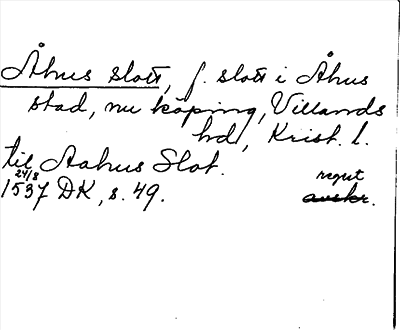 Åhus slott, f. slott i Åhus
stad, nu köping, Villands
hd, Krist. l.
til Aahus Slot.
24/8
1537 DK, s. 49.
avskr.